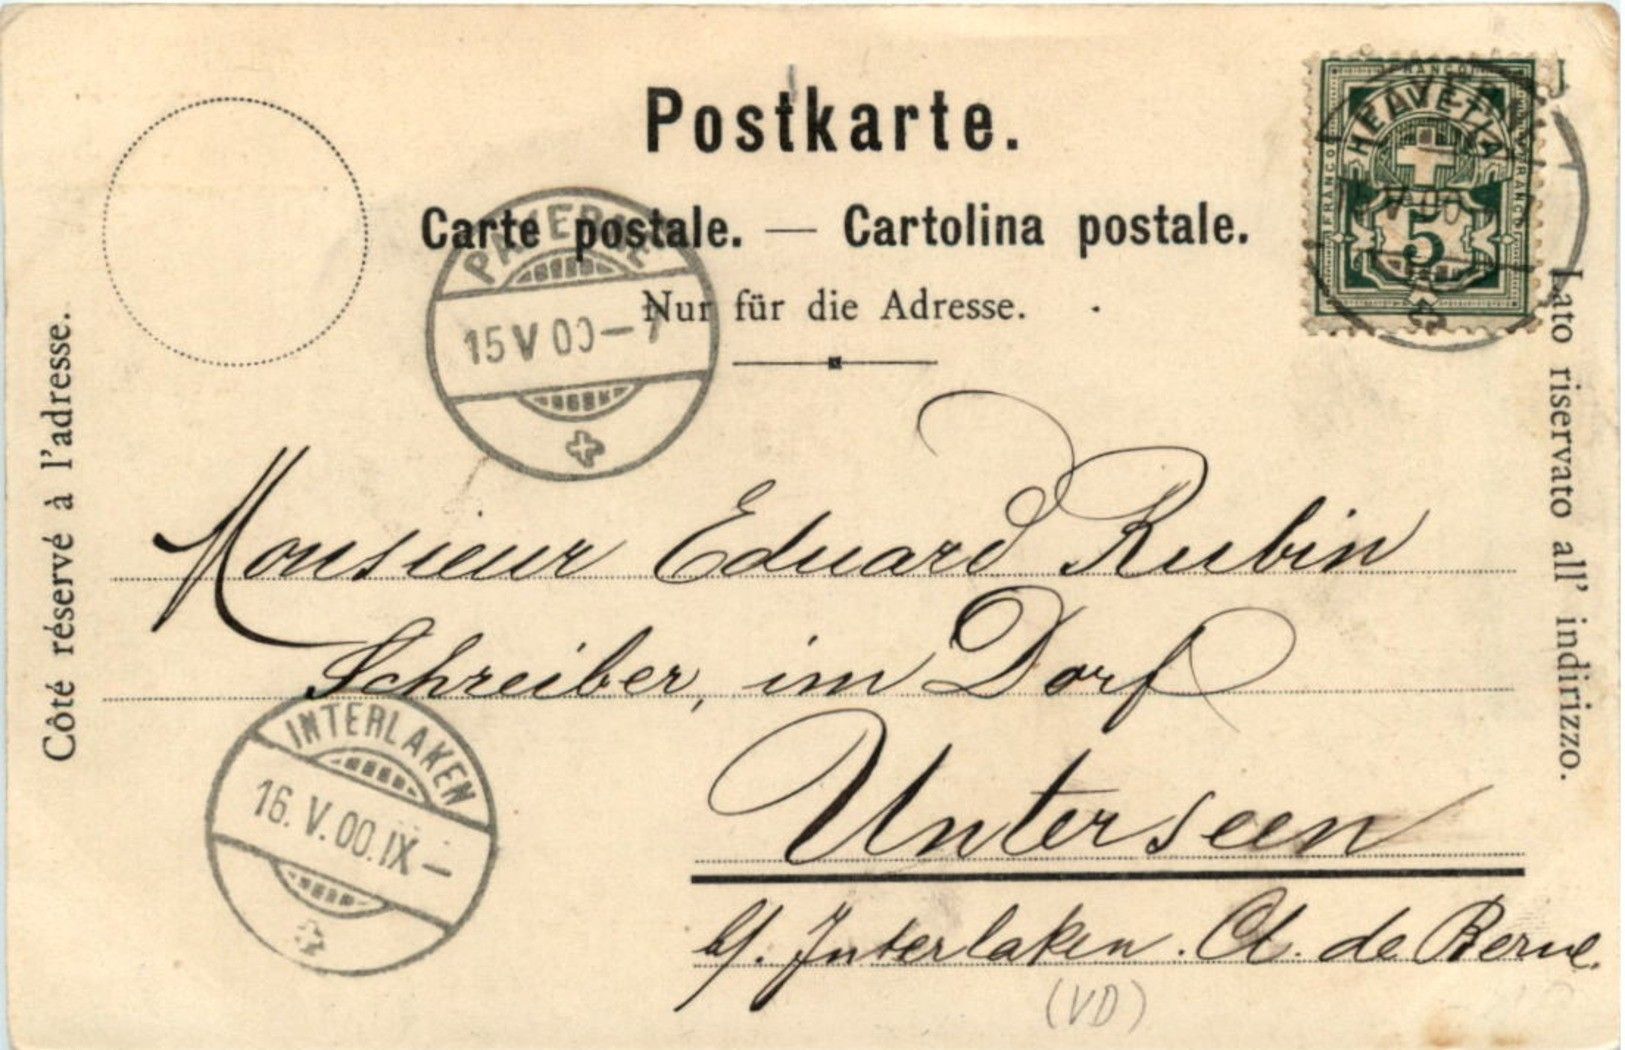 Postkarte.
Carte postale. — Cartolina postale.
Nur für die Adresse.
Côté réservé à l'adresse.
Lato riservato all' indirizzo.
FRANCO
HELVETIA
FRANCO FRANCO
5
PAYERNE
15 V 00 – 7
Monsieur Eduard Rubin
Schreiber, im Dorf
Unterseen
b/. Interlaken. Ct. de Berne.
(VD)
INTERLAKEN
16. V. 00. IX –